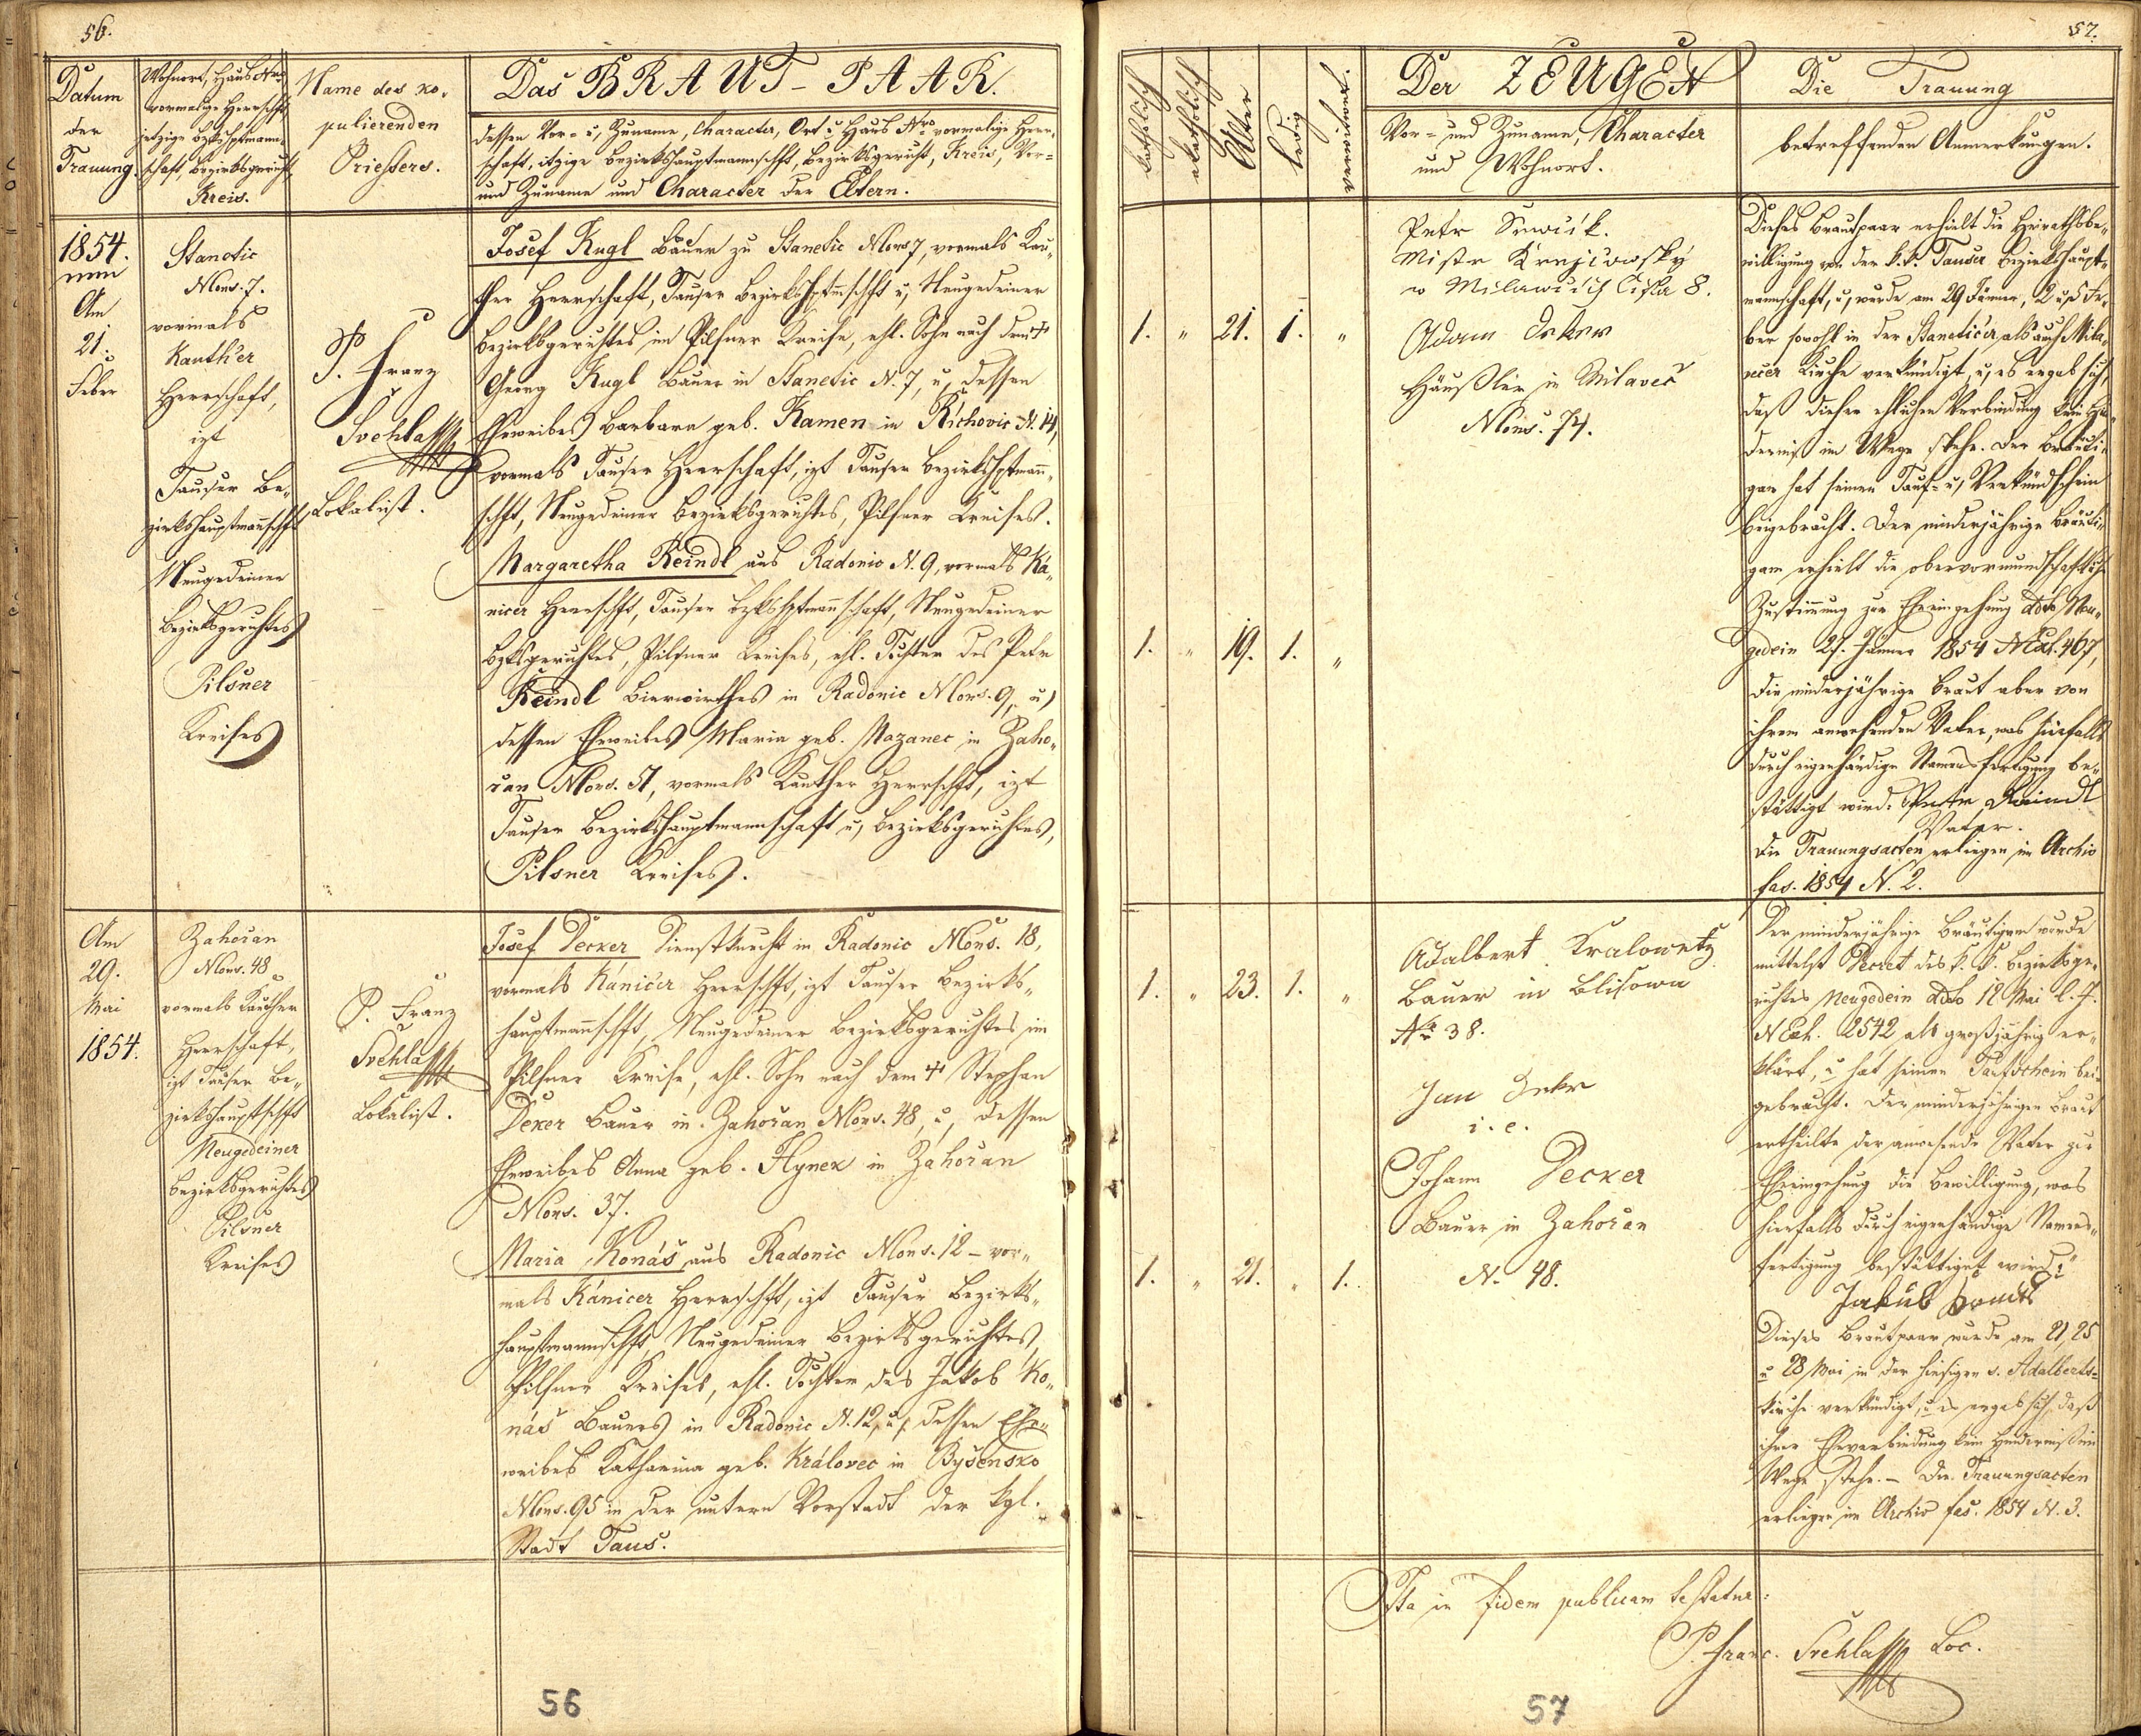 56.
Datum
der
Trauung.
Wohnort, Haus Nro
vormalige Herrschft,
jetzige Bzkshptmann-
schaft, Bezirksgericht,
Kreis.
Name des ko-
pulierenden
Priesters.
Das BRAUT-PAAR.
dessen Vor- u, Zuname, Character, Ort u Haus Nro vormalige Herr-
schaft, itzige Bezirkshauptmannschft, Bezirksgericht, Kreis, Vor-
und Zuname und Character der Eltern.
1854.
Am
21.
Feber
Stanetic
Ncons. 7.
vormals
Kauth'er
Herrschaft,
izt
Tauser Be-
zirkshauptmannschft
Neugedeiner
Bezirksgerichtes
Pilsner
Kreises
P. Franz
Svehla
Lokalist.
Josef Kugl Bauer zu Stanetic Ncons 7, vormals Kau-
ther Herrschaft, Tauser Bezirkshptmschft u, Neugedeiner
Bezirksgerichtes im Pilsner Kreise, ehl. Sohn nach dem †
Georg Kugl Bauer in Stanetic N. 7, u, dessen
Eheweibes Barbara geb. Kamen in Řichovic N. 14,
vormals Tauser Herrschaft, izt Tauser Bezirkshptmann-
schft, Neugedeiner Bezirksgerichtes, Pilsner Kreises.
Margaretha Reindl aus Radonic N. 9, vormals Ka-
nicer Herrschft, Tauser Bzkshptmannschaft, Neugedeiner
Bzksgerichtes, Pilsner Kreises, ehl. Tochter des Petr
Reindl Bierwirthes in Radonic Ncons. 9, u,
dessen Eheweibes Maria geb. Mazanec in Zaho-
řan Ncons. 51, vormals Kauther Herrschft, izt
Tauser Bezirkshauptmannschaft u, Bezirksgerichtes,
Pilsner Kreises.
Am
29.
Mai
1854.
Zahořan
Ncons. 48
vormals Kauther
Herrschaft,
izt Tauser Be-
zirkshauptschft
Neugedeiner
Bezirksgerichtes
Pilsner
Kreises
P. Franz
Svehla
Lokalist.
Josef Decker Dienstknecht in Radonic Ncons. 18,
vormals Kánicer Herrschft, izt Tauser Bezirks-
hauptmannschft, Neugedeiner Bezirksgerichtes im
Pilsner Kreise, ehl. Sohn nach dem † Stephan
Deker Bauer in Zahořan Ncons. 48, u, dessen
Eheweibes Anna geb. Hynek in Zahořan
Ncons. 37.
Maria Konáš aus Radonic Ncons. 12 - vor-
mals Kánicer Herrschft, izt Tauser Bezirks-
hauptmannschft, Neugedeiner Bezirksgerichtes,
Pilsner Kreises, ehl. Tochter des Jakob Ko-
náš Bauers in Radonic N. 12, u, dessen Ehe-
weibes Katharina geb. Královec in Byšensko
Ncons. 95 in der untern Vorstadt der kgl.
Stadt Taus.
56
57.
katholisch
akatholisch
Alter
ledig
verwitwet.
Der ZEUGEN
Vor- und Zuname, Character
und Wohnort.
Die Trauung
betreffenden Anmerkungen.
1. " 21. 1. "
1. " 19. 1. "
Petr
Mistr Krejčowsky
w Milawčich Čisla 8.
Adam Deker
Häußler in Milaveč
Ncons. 74.
Dieses Brautpaar erhielt die Heirathsbe-
willigung von der k. k. Tauser Bezirkshaupt-
mannschaft, u, wurde am 29 Jänner, 2 u, 5 Fe-
ber sowohl in der Staneticer, als auch Mila-
vecer Kirche verkündigt, u, es ergab sich,
daß dieser ehlichen Verbindung kein Hin-
derniß im Wege stehe. Der Bräuti-
gam hat seinen Tauf- u, Verkündschein
beigebracht. Der minderjährige Bräuti-
gam erhielt die obervormundschaftliche
Zustimmung zur Eheeingehung ddto Neu-
gedein 27. Jänner 1854 N Exh. 467,
die minderjährige Braut aber von
ihrem anwesenden Vater, was hierfalls
durch eigenhändige Namensfertigung be-
stättigt wird. Petr Raindl
Vater.
Die Trauungsacten erliegen im Archiv
fas. 1854 N. 2.
1. " 23. 1. "
1. " 21. " 1.
Adalbert Kralowetz
Bauer in Blisowa
No 38.
Jan Dekr
i. e.
Johann Decker
Bauer in Zahořan
N. 48.
Der minderjährige Bräutigam wurde
mittelst Decret des k. k. Bezirksge-
richtes Neugedein ddto 12 Mai l. J.
N Exh. 2542 als großjährig er-
klärt, u hat seinen Taufschein bei-
gebracht. Der minderjährigen Braut
ertheilte der anwesende Vater zur
Eheeingehung die Bewilligung, was
hierfalls durch eigenhändige Namens-
fertigung bestättiget wird:
Jakub
Dieses Brautpaar wurde am 21, 25
u 28 Mai in der hiesigen s. Adalberts-
kirche verkündigt, u es ergab sich, daß
ihrer Eheverbindung kein Hinderniß im
Wege stehe. - Die Trauungsacten
erliegen im Archiv fas. 1854 N. 3.
Ita in fidem publicam testatur:
P. Franc. Svehla Loc.
57